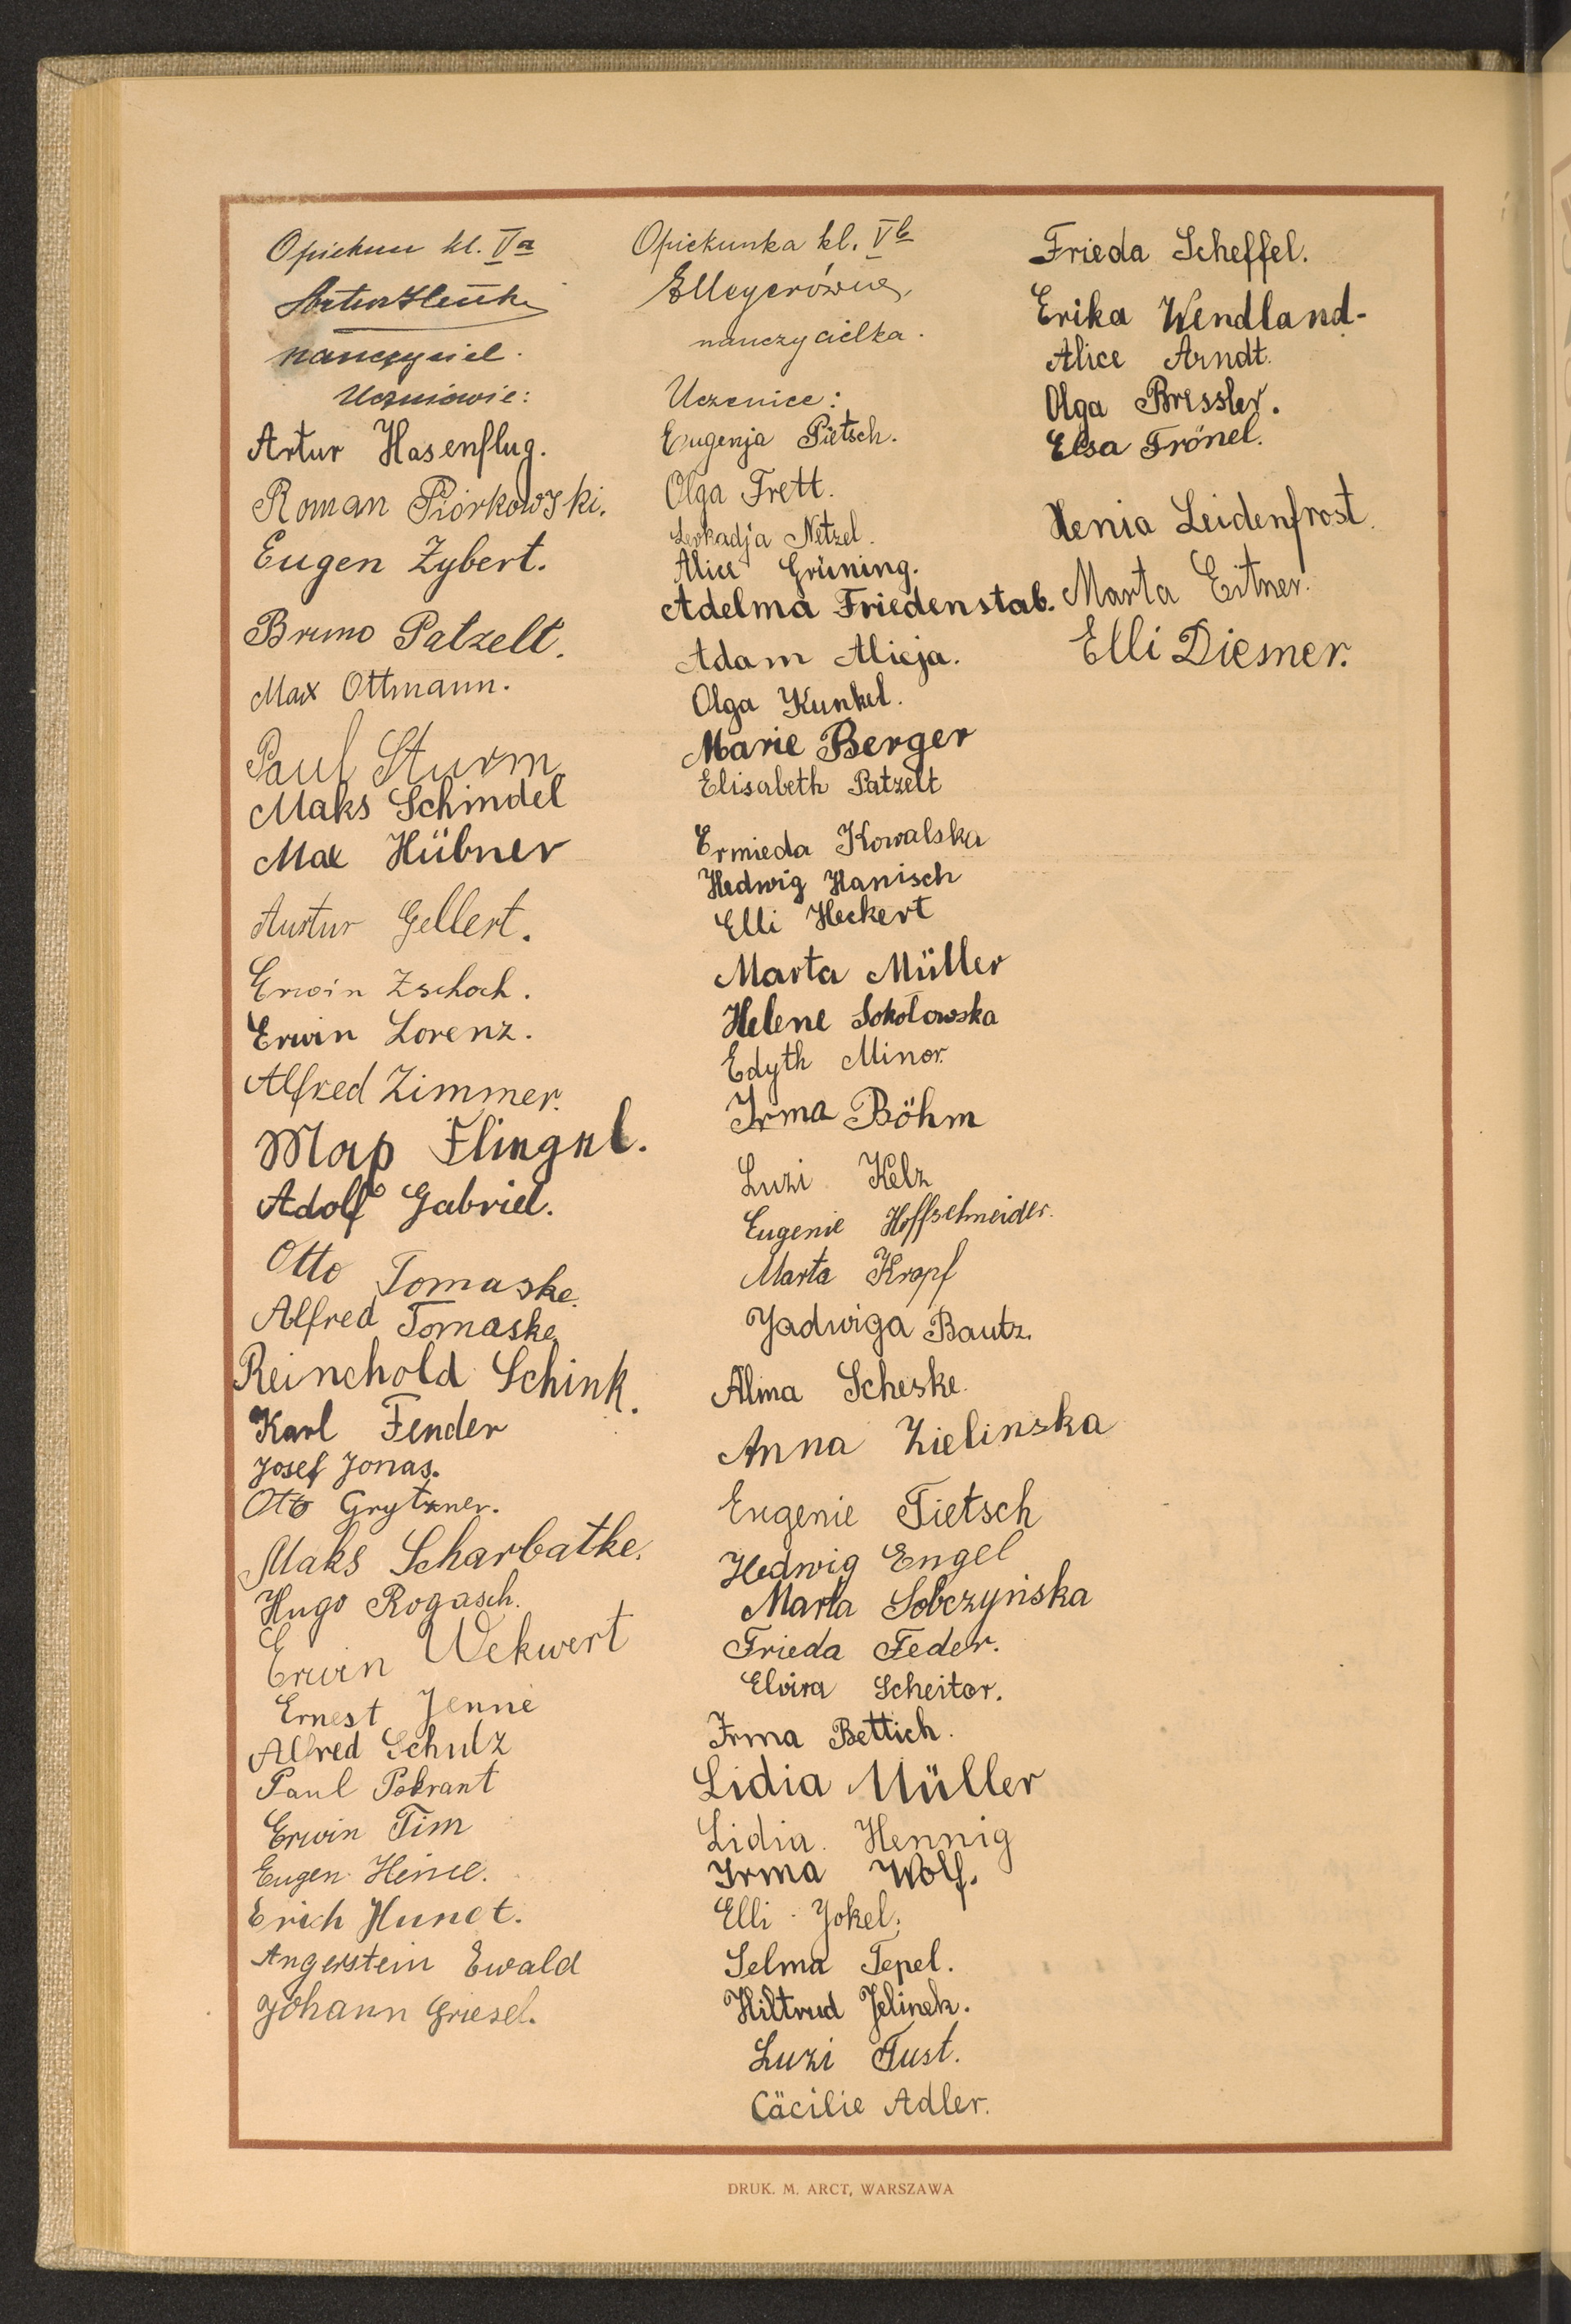 Opiekun kl. Va
nauczyciel.
Uczniowie:
Artur Hasenflug.
Roman Piórkowski.
Eugen Zybert.
Bruno Patzelt.
Max Ottmann.
Paul Sturm.
Maks Schindel
Max Hübner
Aurtur Gellert.
Erwin Zschoch.
Erwin Lorenz.
Alfred Zimmer.
Adolf Gabriel.
Otto Tomaske.
Alfred Tomaske.
Reinchold Schink.
Karl Fender
Josef Jonas.
Otto Grytzner.
Maks Scharbatke.
Hugo Rogasch.
Erwin Wekwert
Ernest Jenne
Alfred Schulz
Paul Pokrant
Erwin Tim
Eugen Heince.
Erich Hundt.
Angerstein Ewald
Johann Griesel.
Opiekunka kl. Vb
EMeyerówna,
nauczycielka.
Uczenice:
Eugenja Pietsch.
Olga Frett.
Leokadja Netzel.
Alice Grüning.
Adelma Friedenstab.
Adam Alicja.
Olga Kunkel.
Marie Berger
Elisabeth Patzelt
Ermieda Kowalska
Hedwig Hanisch
Elli Heckert
Marta Müller
Helene Sokołowska
Edyth Minor.
Irma Böhm
Luzi Kelz
Eugenie Hoffschneider.
Marta Kropf
Jadwiga Bautz.
Alma Scheske.
Anna Zielinska
Eugenie Tietsch
Hedwig Engel
Marta Sobczyńska
Frieda Feder.
Elvira Scheitor.
Irma Bettich.
Lidia Müller
Lidia Hennig
Irma Wolf.
Elli Jokel.
Selma Tepel.
Hiltrud Jelinek.
Luzi Tust.
Cäcilie Adler.
Frieda Scheffel.
Erika Wendland-
Alice Arndt.
Olga Bressler.
Elsa Frönel.
Xenia Leidenfrost.
Marta Eitner.
Elli Diesner.
DRUK. M. ARCT, WARSZAWA